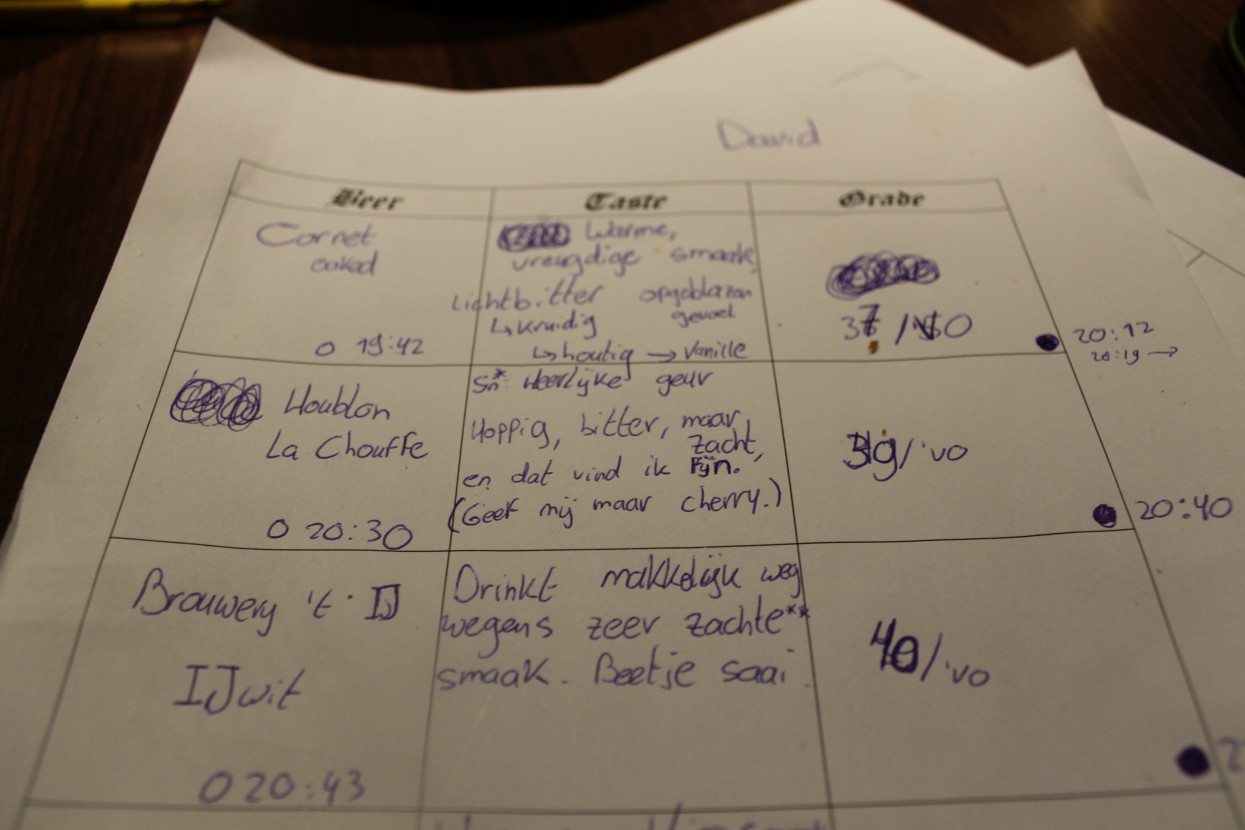 David
Beer Taste Grade
Cornet
oaked
O 19:42
Warme,
vreugdige smaak,
lichtbitter opgeblazen
↳ kruidig gevoel
↳ houtig → Vanille
37 /
20:12
20:19 →
Houblon
La Chouffe
O 20:30
Sn* Heerlijke geur
Hoppig, bitter, maar
zacht,
en dat vind ik Fijn.
(Geef mij maar cherry.)
39/'vo
20:40
Brouwery 't IJ
IJwit
O 20:43
Drinkt makkelijk weg
wegens zeer zachte**
smaak. Beetje saai.
40/'vo